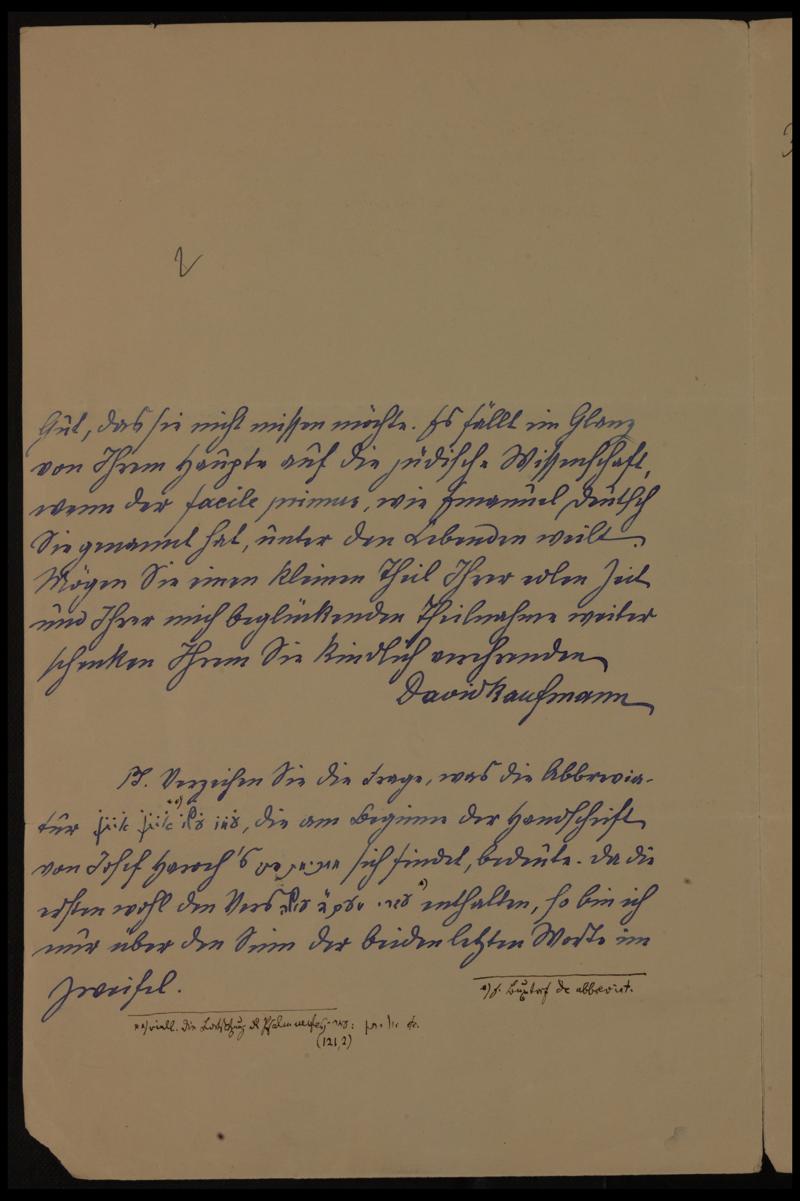 2
Gut, das sie nicht missen möchte. Es fällt ein Glanz
von Ihrem Haupte auf die jüdische Wissenschaft,
wenn der facile primus, wie Emanuel Deutsch
Sie genannt hat, unter den Lebenden weilt.
Mögen Sie einen kleinen Theil Ihrer edlen Zeit
und Ihrer mich beglückenden Theilnahme weiter
schenken Ihrem Sie kindlich verehrenden
David Kaufmann
PS. Verzeihen Sie die Frage, was die Abbrevia-
tur die am Beginne der Handschrift
von Josef sich findet, bedeute. Da die
ersten wohl den Vers enthalten, so bin ich
nur über den Sinn der beiden letzten Worte im
Zweifel.
*) s. Buxtorf de abbreviat.
**) viell. die
(121,2)